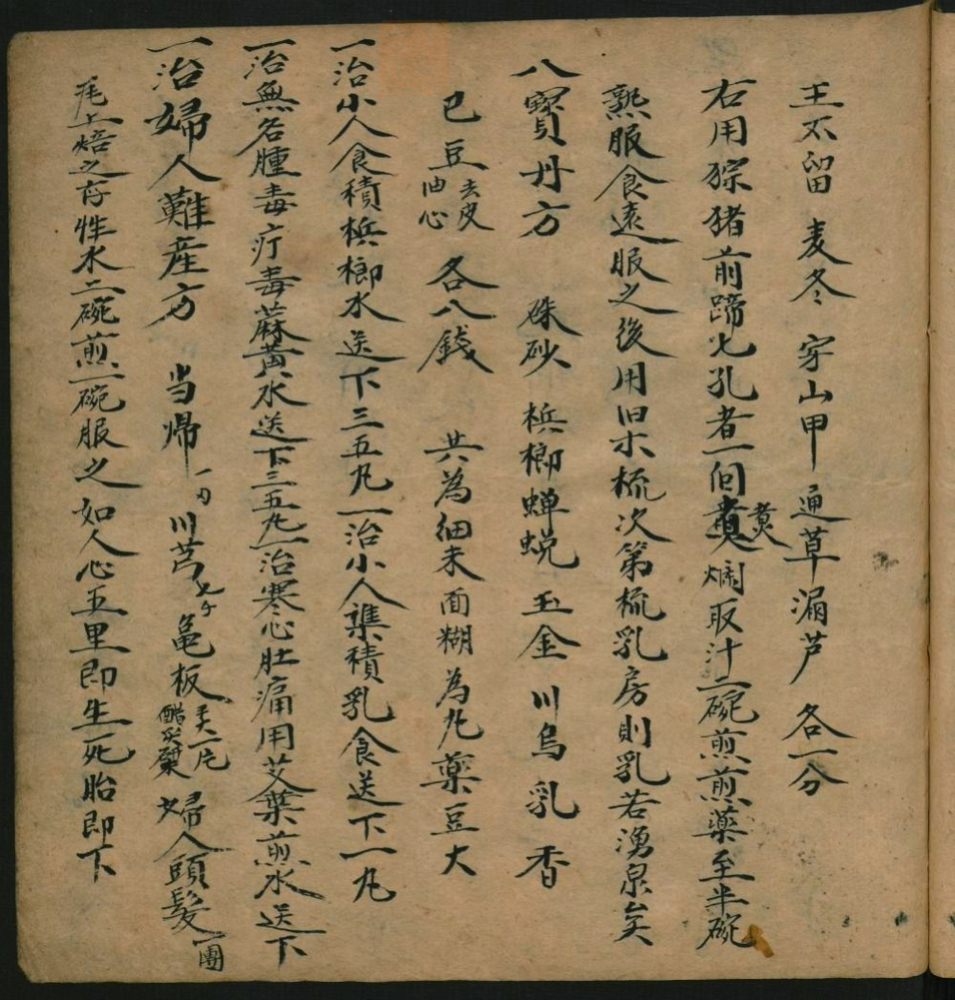 王不留 麦冬 穿山甲 通草 漏芦 各一分
右用猔猪前蹄七孔者一個煮煮爛取汁二碗煎煎藥至半碗
熟服食遠服之後用旧木梳次第梳乳房則乳若湧泉矣
八寶丹方 硃砂 梹榔 蝉蜕 玉金 川烏 乳香
巴豆去皮油心 各八錢 共為細末面糊為丸藥豆大
一治小人食積梹榔水送下三五丸一治小人積乳食送下一丸
一治無名腫毒疔毒蔴黄水送下三五丸一治寒心肚痛用艾葉煎水送下
一治婦人難産方 当帰一两 川芎七个 亀板一片醋炙 婦人頭髪一團
上焙之存性水二碗煎一碗服之如人心五里即生死胎即下